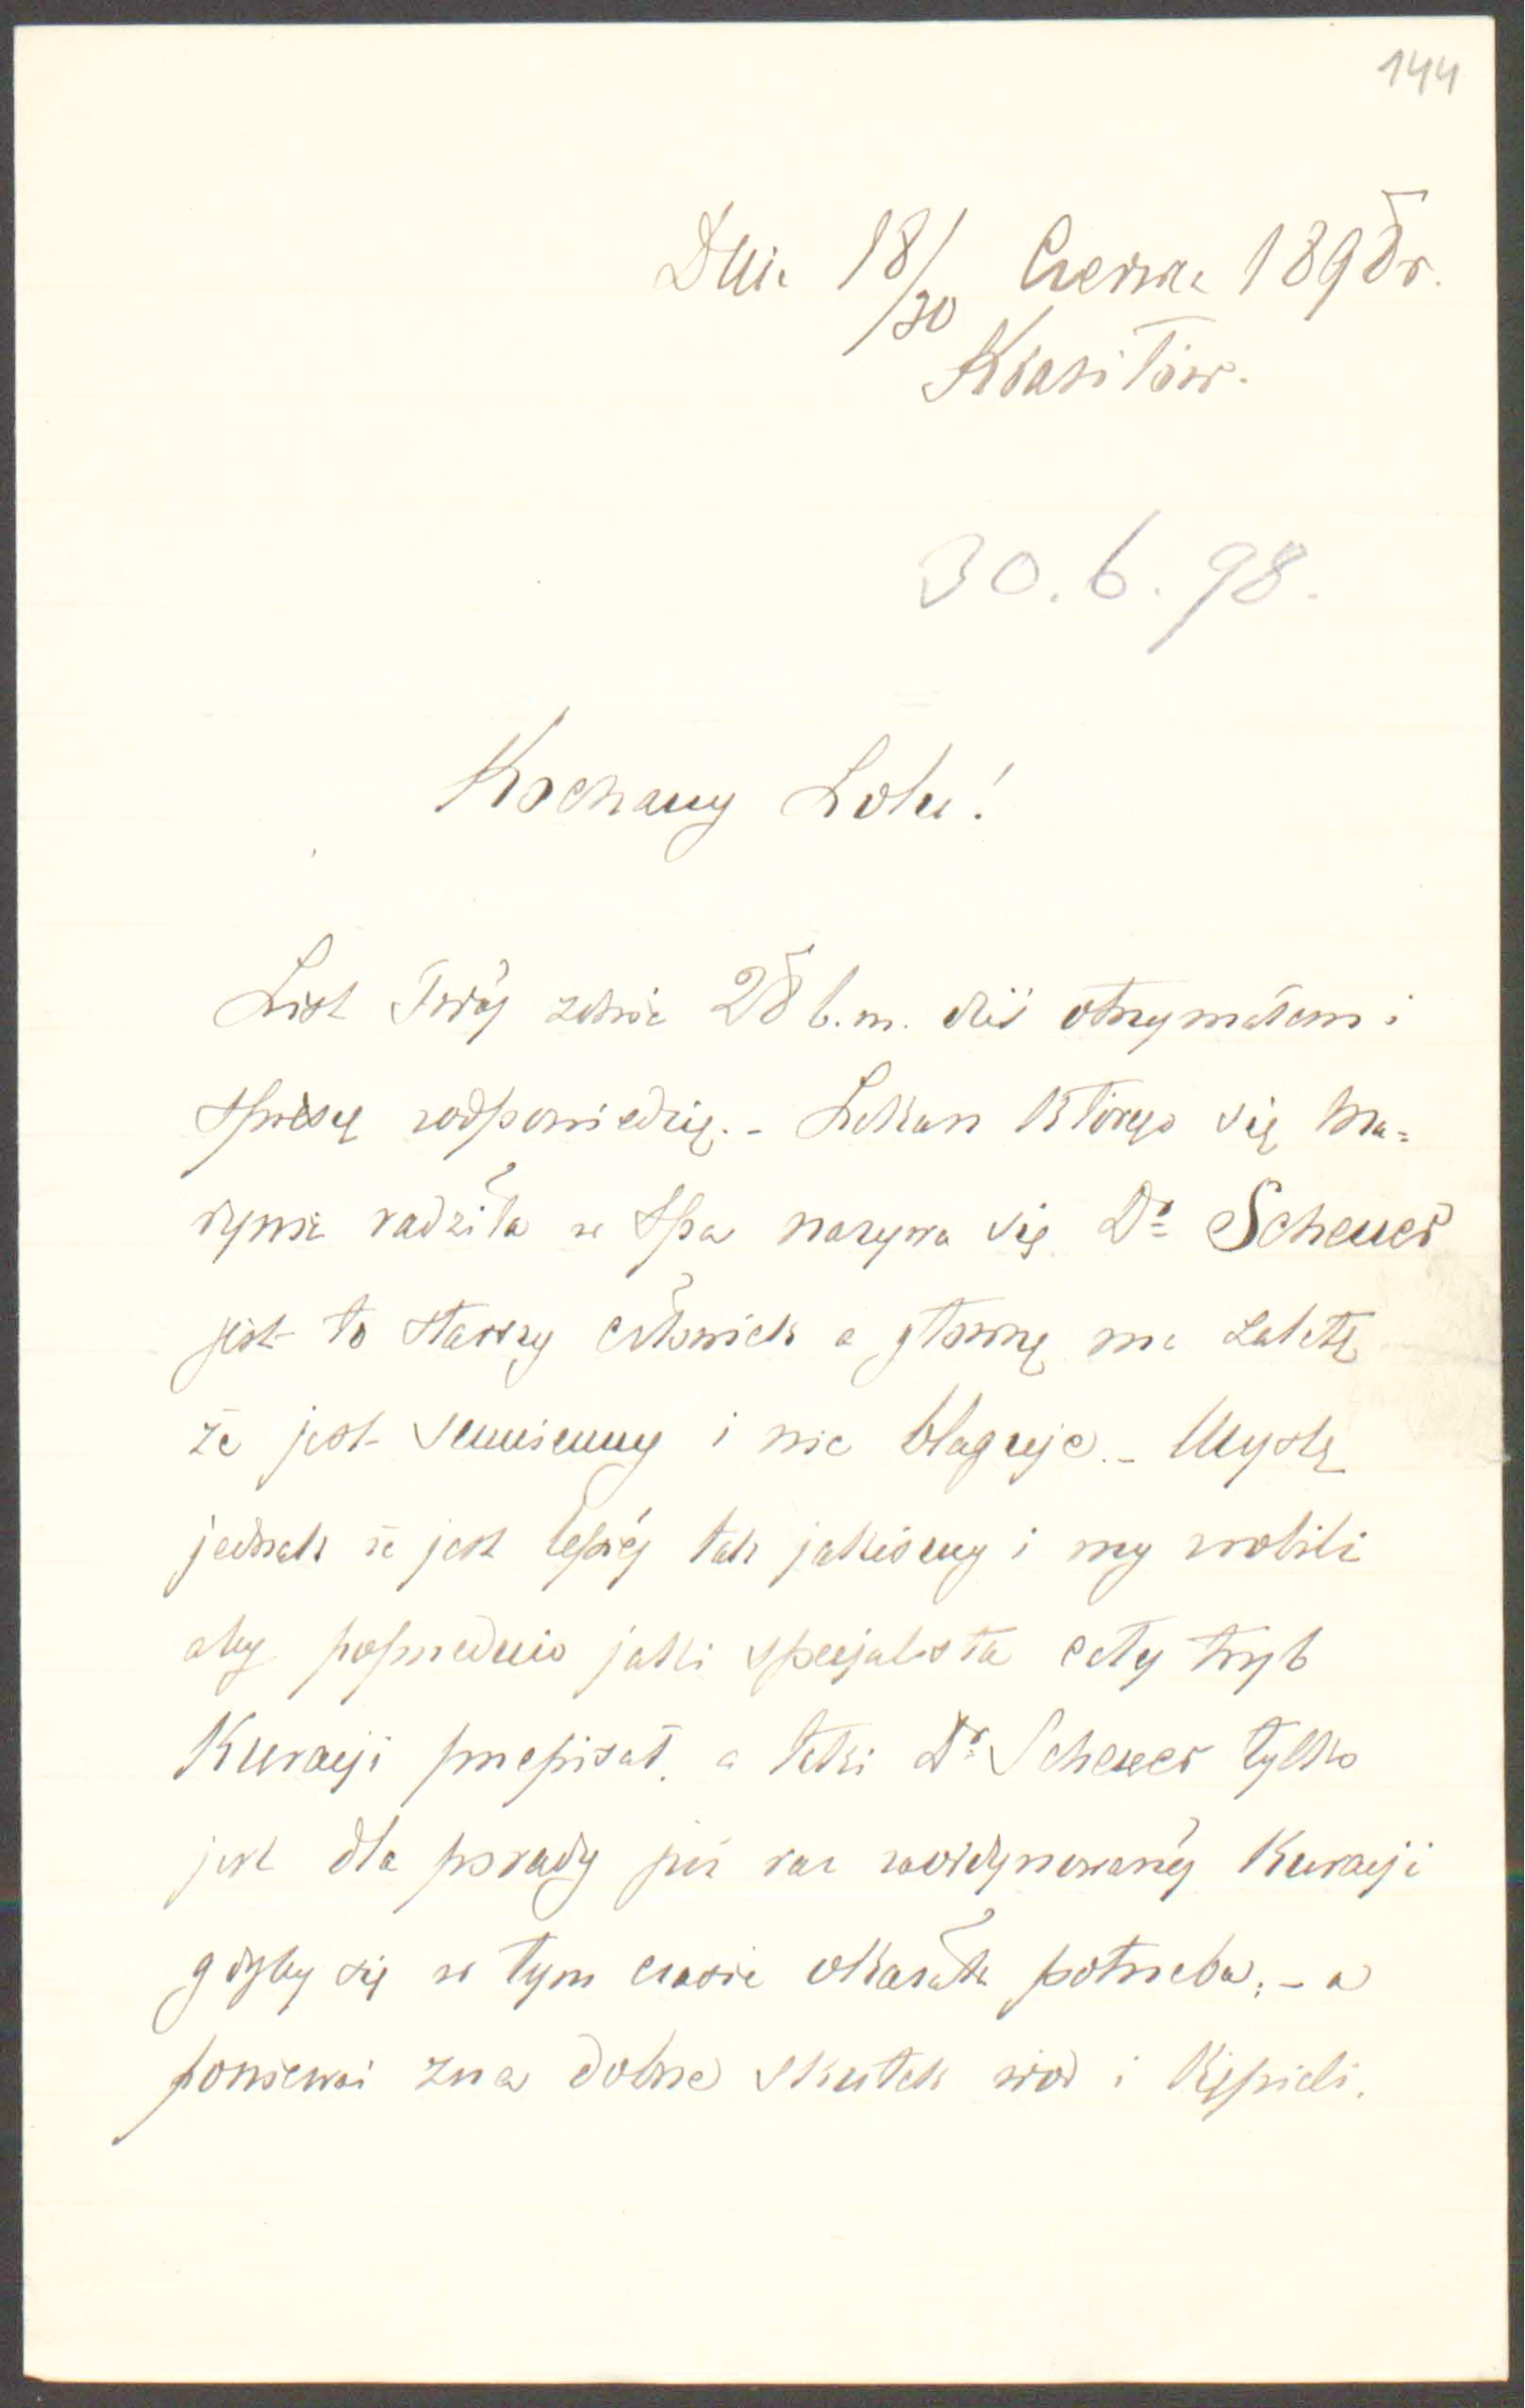 144
Dnia 18/30 Czerwca 1898 r.
Krasiłów.
30.6.98.
Kochany Lolu!
List Twój z dnia 28 b.m. dziś otrzymałem i
spieszę z odpowiedzią. - Lekarz którego się Ma=
rynia radziła w Spa nazywa się Dr Scheuer
jest to starszy człowiek a główną ma zaletę
że jest sumienny i nie blaguje. - Myślę
jednak że jest lepiéj tak jakeśmy i my zrobili
aby poprzednio jaki specjalista cały tryb
Kuracji przepisał, a taki Dr Scheuer tylko
jest dla porady już raz zaordynowanéj Kuracji
gdyby się w tym czasie okazała potrzeba; - a
ponieważ zna dobrze skutek wód i Kąpieli.